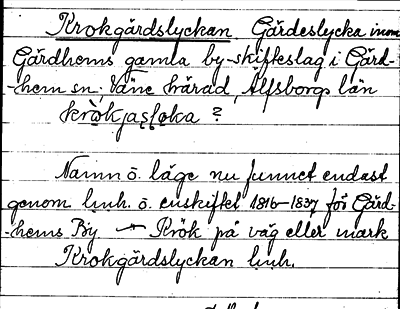 Krokgärdslyckan Gärdeslycka inom
Gärdhems gamla by-skifteslag i Gärd-
-hem sn. Väne härad, Älfsborgs län
krökjasloka ?
Namn o. läge nu funnet endast
genom lmh. o. enskiftet 1816-1837 för Gärd-
-hems By → Krök på väg eller mark
Krokgärdslyckan lmh.